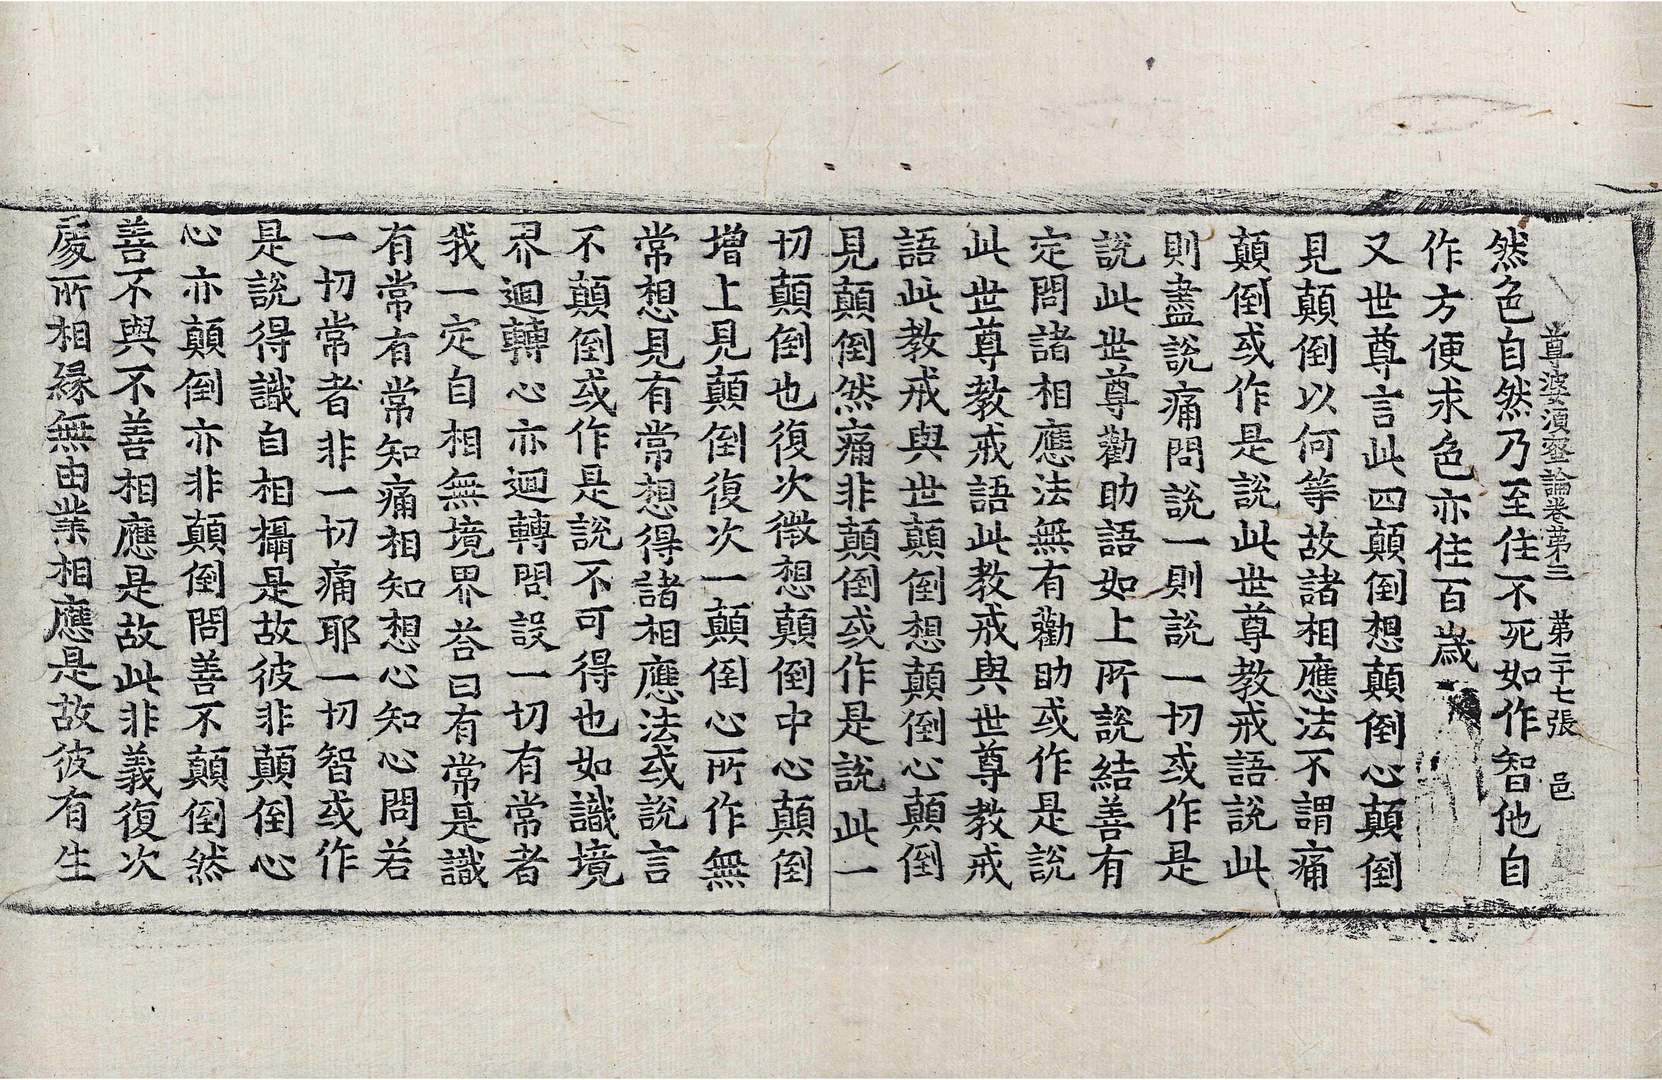 尊婆須蜜論卷第三 第二十七張 邑
然色自然乃至住不死如作智他自
作方便求色亦住百歲
又世尊言此四顛倒想顛倒心顛倒
見顛倒以何等故諸相應法不謂痛
顛倒或作是說此世尊教戒語說此
則盡說痛問說一則說一切或作是
說此世尊勸助語如上所說結善有
定問諸相應法無有勸助或作是說
此世尊教戒語此教戒與世尊教戒
語此教戒與世顛倒想顛倒心顛倒
見顛倒然痛非顛倒或作是說此一
切顛倒也復次微想顛倒中心顛倒
增上見顛倒復次一顛倒心所作無
常想見有常想得諸相應法或說言
不顛倒或作是說不可得也如識境
界迴轉心亦迴轉問設一切有常者
我一定自相無境界荅曰有常是識
有常有常知痛相知想心知心問若
一切常者非一切痛耶一切智或作
是說得識自相攝是故彼非顛倒心
心亦顛倒亦非顛倒問善不顛倒然
善不與不善相應是故此非義復次
處所相緣無由業相應是故彼有生